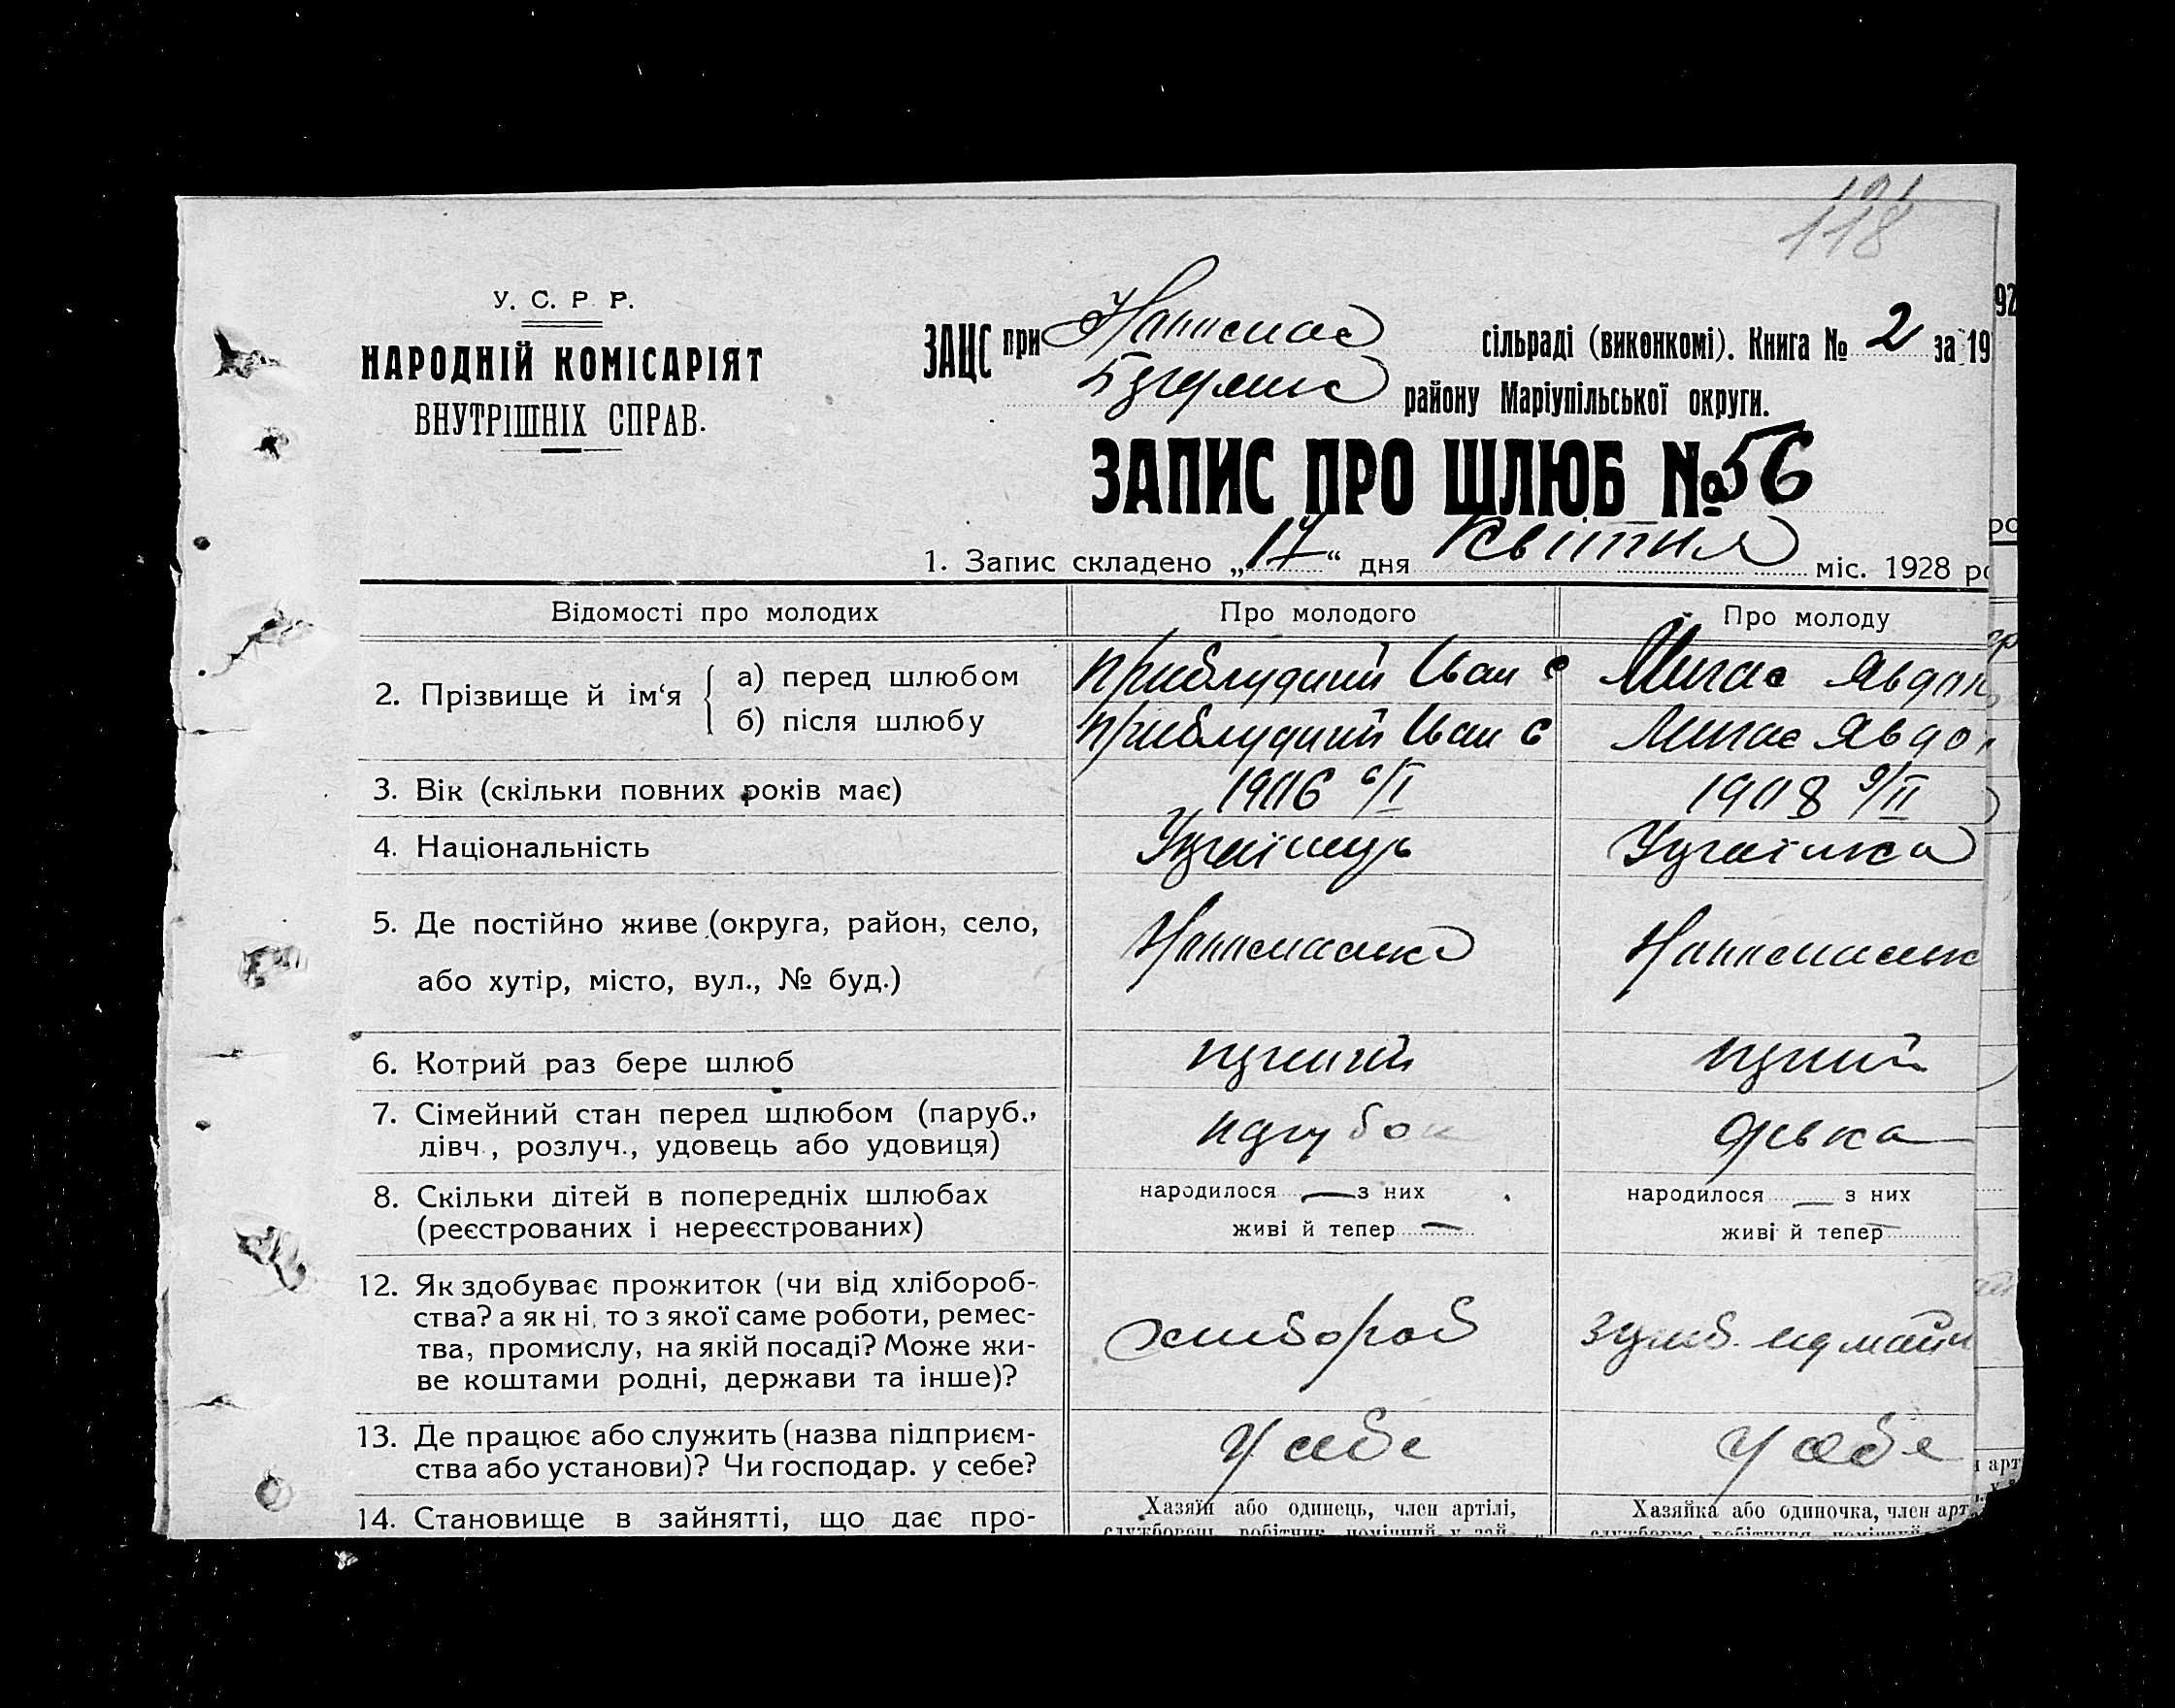 191
118
У. С. Р. Р.
НАРОДНІЙ КОМІСАРІЯТ
ВНУТРІШНІХ СПРАВ.
ЗАЦС при сільраді (виконкомі). Книга № 2 за 19
району Маріупільської округи.
ЗАПИС ПРО ШЛЮБ № 56
1. Запис складено „17“ дня Квітня міс. 1928 ро
Відомості про молодих Про молодого Про молоду
2. Прізвище й ім‘я
а) перед шлюбом Приблудний Іван Є Мигає Явдок
б) після шлюбу Приблудний Іван Є Мигає Явдок
3. Вік (скільки повних років має) 1906 6/I 1908 9/II
4. Національність Українець Українка
5. Де постійно живе (округа, район, село,
або хутір, місто, вул., № буд.)
6. Котрий раз бере шлюб перший перший
7. Сімейний стан перед шлюбом (паруб.,
дівч., розлуч., удовець або удовиця) парубок дівка
8. Скільки дітей в попередніх шлюбах народилося — з них народилося — з них
(реєстрованих і нереєстрованих) живі й тепер — живі й тепер
12. Як здобуває прожиток (чи від хлібороб-
ства? а як ні, то з якої саме роботи, ремес-
тва, промислу, на якій посаді? Може жи- хлібороб
ве коштами родні, держави та інше)?
13. Де працює або служить (назва підприєм-
ства або установи)? Чи господар. у себе? У себе У себе
14. Становище в зайнятті, що дає про-
Хазяїн або одинець, член артілі,
Хазяйка або одиночка, член арт